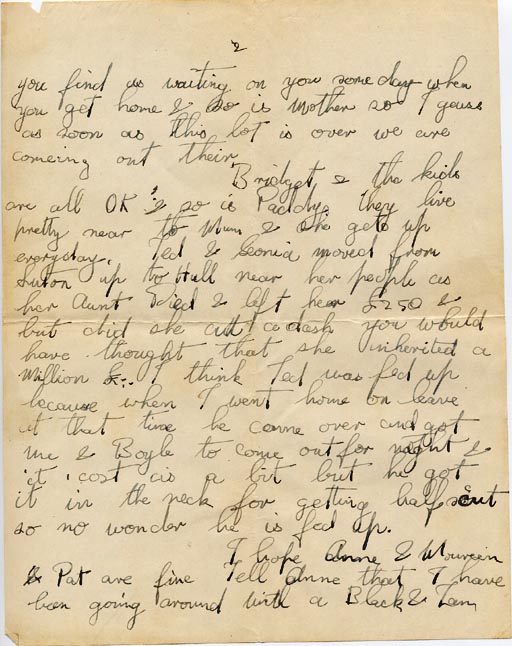 2
you find us waiting on you some day when
you get home & so is Mother so I gess
as soon as this lot is over we are
comeing out their
Bridget & the kids
are all OK & so is Paddy, they live
pretty near to Mum & she gets up
everyday. Ted & Leonia moved from
Luton up to Hull near her people as
her Aunt died & left her £250 &
but did she cut a dash you would
have thought that she inherited a
Million £. I think Ted was fed up
because when I went home on leave
at that time he came over and got
me & Boyle to come out for night &
it cost us a bit but he got
it in the neck for getting half sout
so no wonder he is fed up.
I hope Anne & Moureen
& Pat are fine Tell Anne that I have
been going around with a Black & Tan